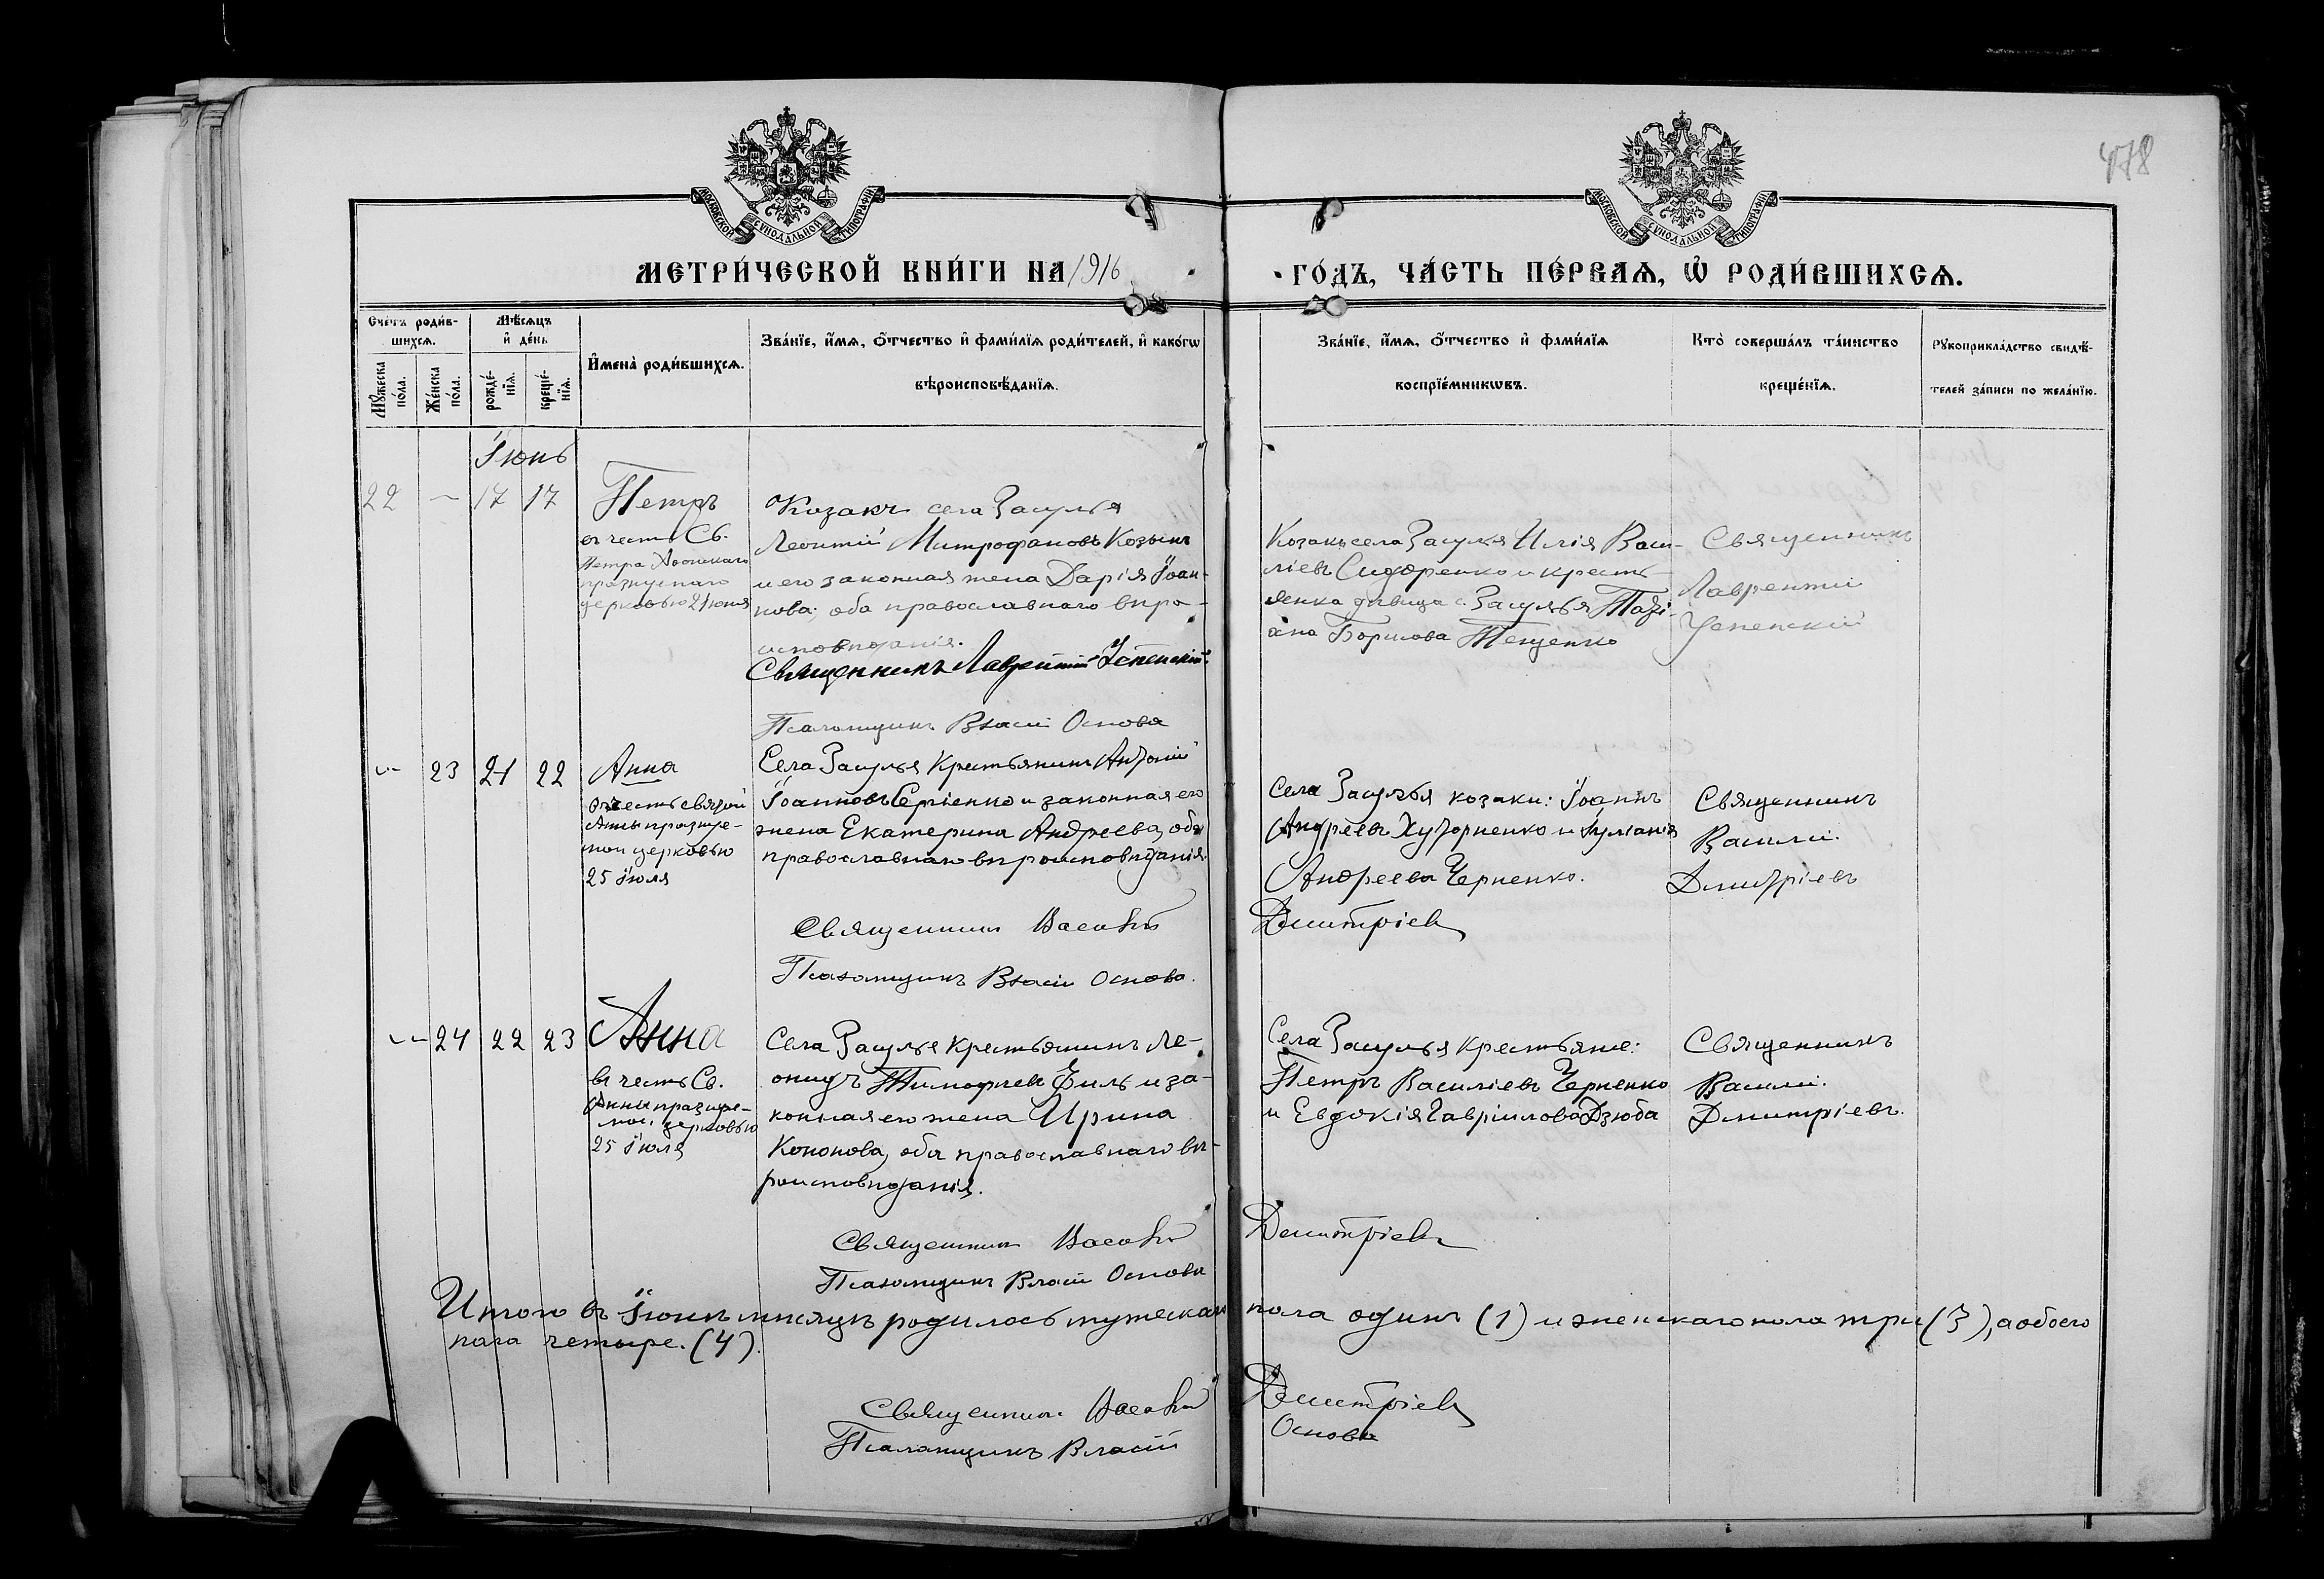 478
МОСКОВСКОЙ СѴНОДАЛЬНОЙ ТИПОГРАФІИ
МОСКОВСКОЙ СѴНОДАЛЬНОЙ ТИПОГРАФІИ
МЕТРИ́ЧЕСКОЙ КНИ́ГИ НА 1916 ГО́ДЪ, ЧА́СТЬ ПЕ́РВАѦ, Ѽ РОДИ́ВШИХСѦ.
Сче́тъ роди́в-
шихсѧ.
Мꙋ́жеска по́ла.
Же́нска по́ла.
Мѣ́сѧцъ
и҆ де́нь
рожде́-
нїѧ.
креще́-
нїѧ.
И҆мена̀ роди́вшихсѧ.
Зва́нїе, и҆́мѧ, ѻ҆́тчество и҆ фами́лїѧ роди́телей, и҆ како́гѡ
вѣроисповѣ́данїѧ.
Зва́нїе, и҆́мѧ, ѻ҆́тчество и҆ фами́лїѧ
воспрїе́мникѡвъ.
Кто̀ соверша́лъ та́инство
креще́нїѧ.
Рꙋкоприкла́дство свидѣ́-
телей за́писи по жела́нїю.
Іюнь
22 — 17 17
Петръ
въ честь Св.
Петра Аѳонскаго
празднуемаго
церковью 21 іюня
Козакъ села Засулья
Леонтій Митрофановъ Козынъ
и его законная жена Дарія Іоан-
нова, оба православнаго вѣро-
исповѣданія.
Священникъ Лаврентій Успенскій.
Псаломщикъ Власій Основа
Козакъ села Засулья Илія Васи-
ліевъ Сидоренко и кресть-
янка дѣвица с. Засулья Таті-
ана Борисова Тещенко
Священникъ
Лаврентій
Успенскій
— 23 21 22
Анна
въ честь святой
Анны праздуе-
мой церковью
25 іюля
Села Засулья крестьянинъ Антоній
Іоанновъ Сергіенко и законная его
жена Екатерина Андреева, оба
православнаго вѣроисповѣданія.
Священникъ Василій Дмитріевъ
Псаломщикъ Власій Основа.
Села Засулья козаки: Іоаннъ
Андреевъ Хуторненко и Іуліанія
Андреева Черненко.
Священникъ
Василій
Дмитріевъ
— 24 22 23
Анна
въ честь Св.
Анны праздуе-
мой церковью
25 іюля
Села Засулья крестьянинъ Ле-
онидъ Тимофіевъ Филь и за-
конная его жена Ирина
Кононова, оба православнаго вѣ-
роисповѣданія.
Священникъ Василій Дмитріевъ
Псаломщикъ Власій Основа
Села Засулья крестьяне:
Петръ Василіевъ Черненко
и Евдокія Гавріилова Дзюба
Священникъ
Василій
Дмитріевъ.
Итого въ Іюнѣ мѣсяцѣ родилось мужескаго пола одинъ (1) и женскаго пола три (3), а обоего
пола четыре. (4).
Священникъ Василій Дмитріевъ
Псаломщикъ Власій Основа